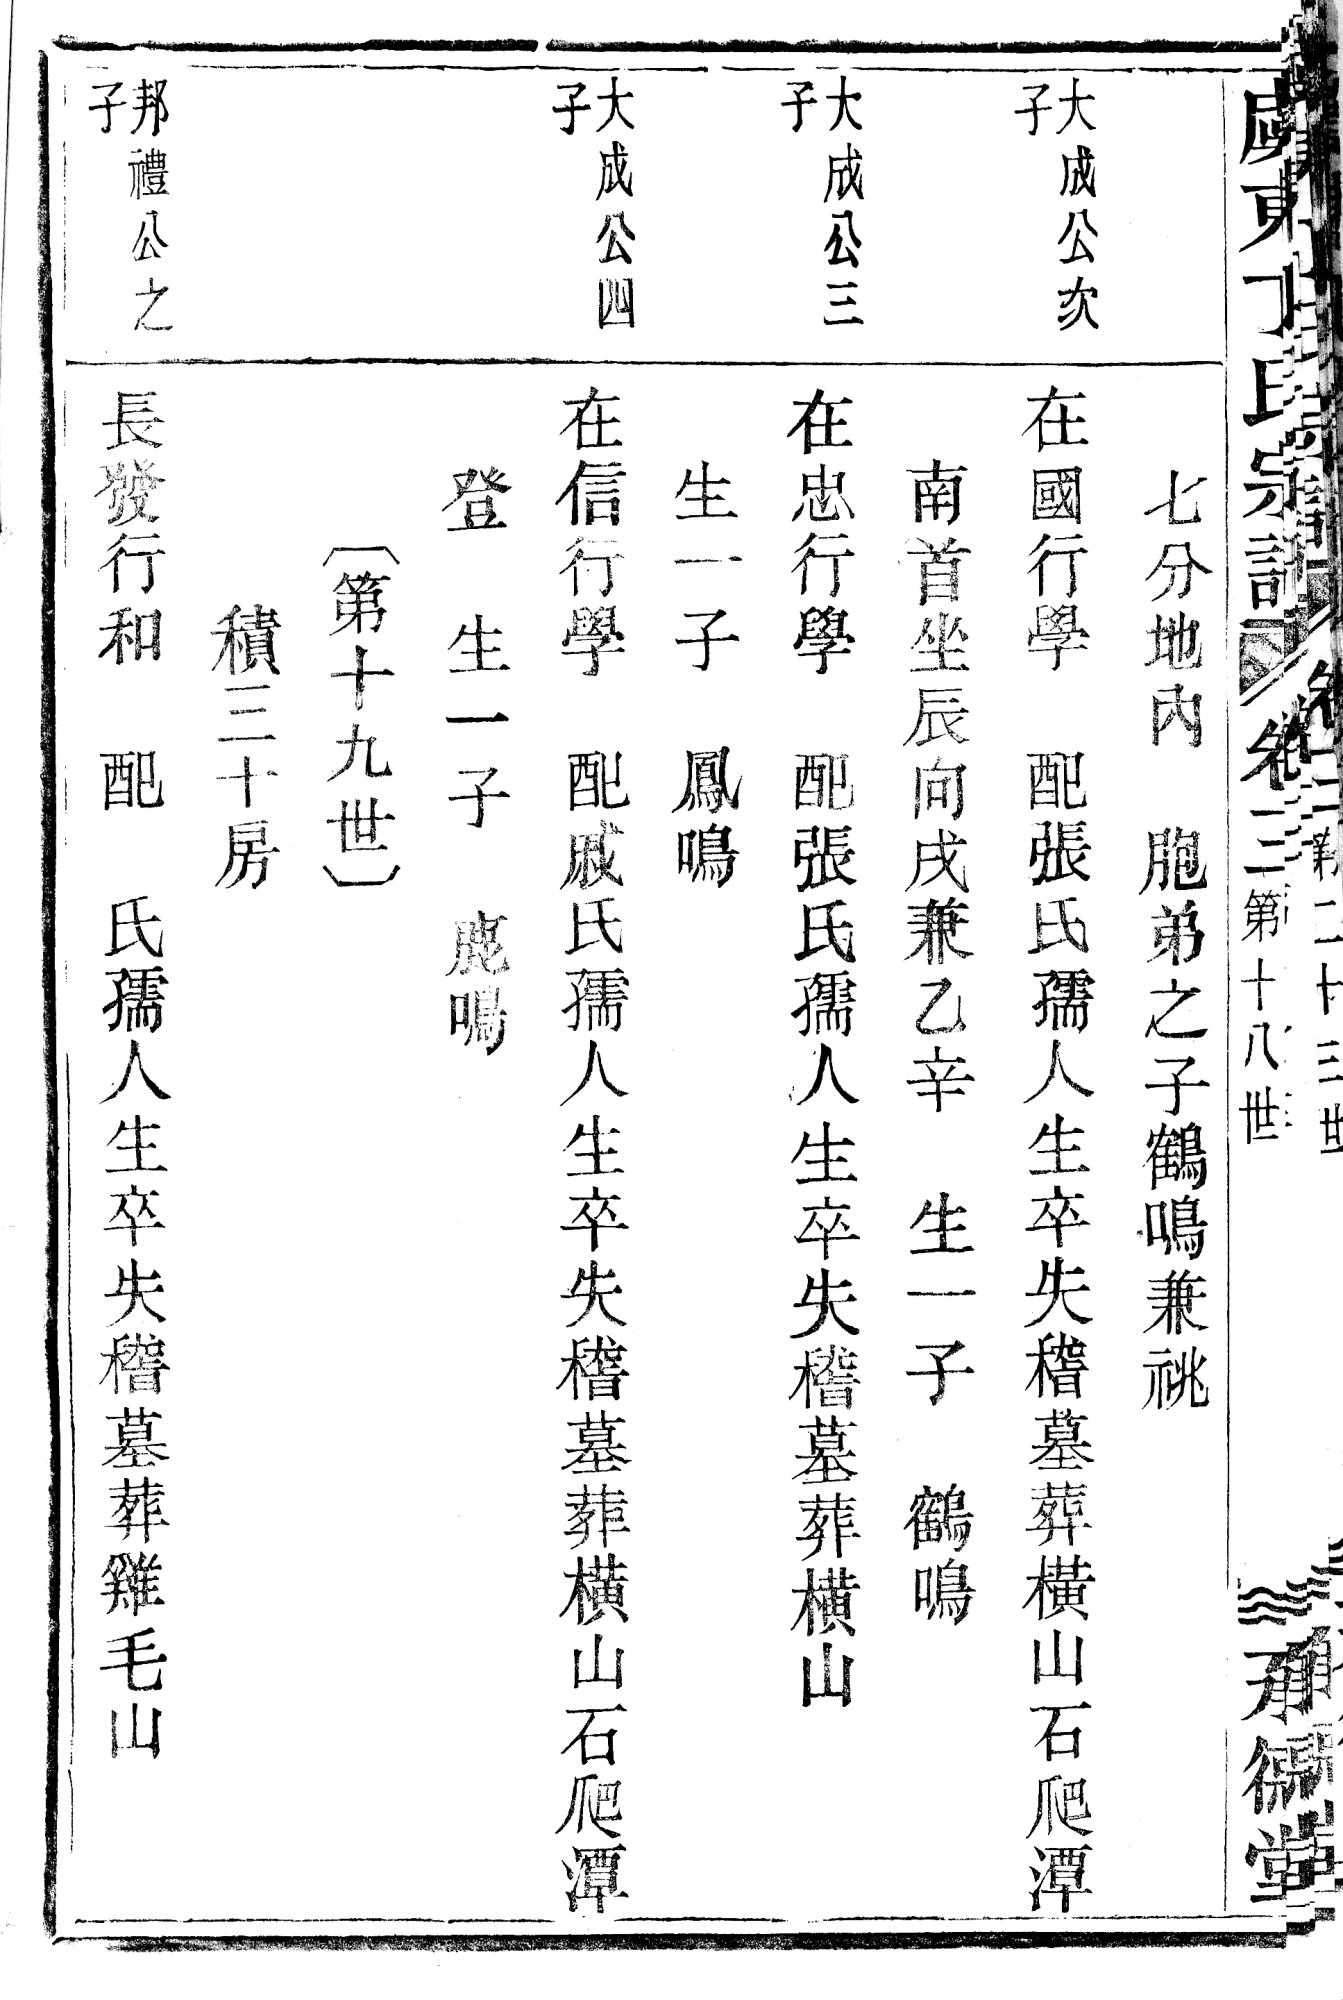 東丁氏宗譜 卷三 第十八世
七分地內 胞弟之子鶴鳴兼祧
大成公次子
在國行學 配張氏孺人生卒失稽墓葬橫山石爬潭
南首坐辰向戌兼乙辛 生一子 鶴鳴
大成公三子
在忠行學 配張氏孺人生卒失稽墓葬橫山
生一子 鳳鳴
大成公四子
在信行學 配戚氏孺人生卒失稽墓葬橫山石爬潭
登 生一子 鹿鳴
〔第十九世〕
積三十房
邦禮公之子
長發行和 配 氏孺人生卒失稽墓葬雞毛山